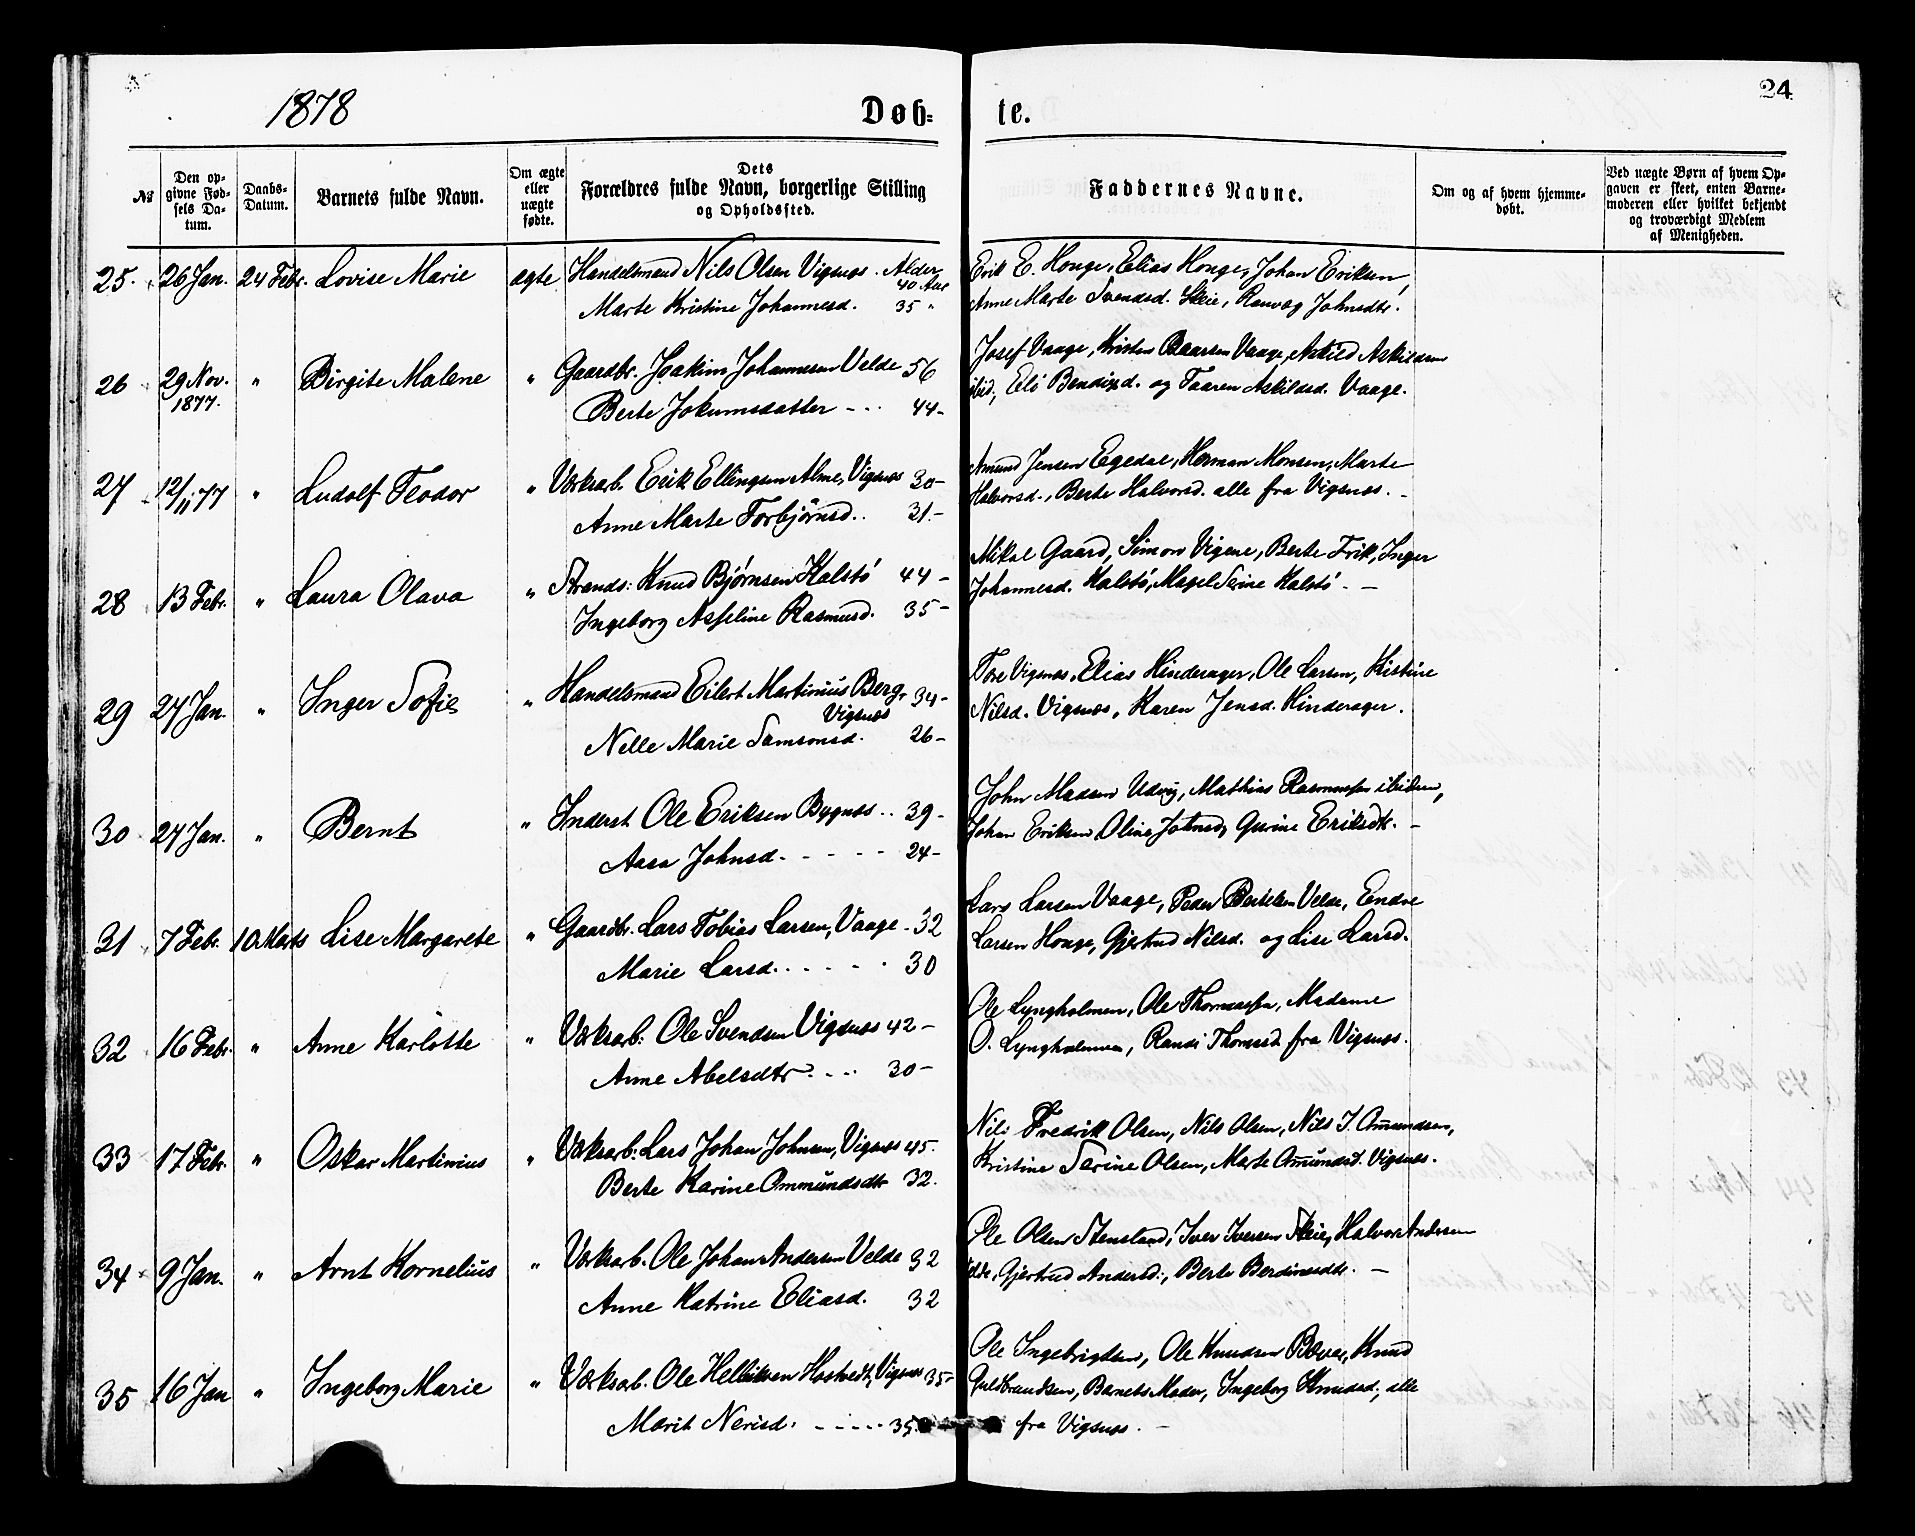 1878 Døb= te. 24
No
Den op-
givne Fød-
sels Da-
tum.
Daabs-
Datum.
Barnets fulde Navn.
Om ægte
eller
uægte
fødte.
Dets
Forældres fulde Navn, borgerlige Stilling
og Opholdssted.
Faddernes Navne.
Om og af hvem hjemme-
døbt.
Ved uægte Børn af hvem Op-
gaven er skeet, enten Barne-
moderen eller hvilket bekjendt
og troværdigt Medlem
af Menigheden.
25. 26 Jan. 24 Febr. Lovise Marie ægte Handelsmand Nils Olsen Vigsnæs. Alder
40 Aar
Marte Kristine Johannesd. 35 "
Erik E. Houge, Elias Houge, Johan Eriksen,
Anne Marte Svendsd. Skeie, Ranvog Johnsdtr.
26 29 Nov. " Birgite Malene " Gaardbr. Joakim Johannesen Velde 56
1877.
Berte Jokumsdatter - .. 44-
Josef Vaage, Kristen Vaage, Askild Askildsen
ibid, Eli Bendixd. og Taaren Askildsd. Vaage.
27 12/11 77 " Ludolf Teodor " Værksarb. Erik Ellingsen Alme, Vigsnæs 30-
Anne Marte Torbjørnsd.. 31.-
Amund Jensen Egedal, Herman Monsen, Marte
Halvorsd., Berte Halvorsd. alle fra Vigsnæs. -
28 13 Febr. " Laura Olava " Strands: Knud Bjørnsen Kalstø 44-
Ingeborg Asseline Rasmusd. 35-
Mikal Gaard, Simon Vigene, Berte Frik, Inger
Johannesd. Kalstø, Magel Serine Kalstø - -
29 27 Jan. " Inger Sofie " Handelsmand Eilert Martinius Berg, 34-
Vigsnæs
Nelle Marie Samsonsd. 26-
Tore Vigsnæs, Elias Hinderager, Ole Larsen, Kistine
Nilsd. Vigsnæs, Karen Jensd. Hinderager.
30 27 Jan. " Bernt " Inderst Ole Eriksen Bygnæs .. 39-
Aasa Johnsd. - - - - 24-
John Madsen Udvig, Mathias Rasmussen ibidem,
Johan Eriksen, Oline Johnsd, Gurine Eriksdtr. -
31 7 Febr. 10 Marts Lise Margarete " Gaardbr. Lars Tobias Larsen, Vaage - 32
Marie Larsd. . . . . . 30
Lars Larsen Vaage, Peder Bertelsen Velde, Endre
Larsen Houge, Gjertrud Nilsd. og Lise Larsd.
32 16 Febr. " Anne Karlotte " Værksarb. Ole Svendsen Vigsnæs 42-
Anne Abelsdtr. . .. 30-
Ole Lyngholmen, Ole Thomassen, Madame
O. Lyngholmen, Randi Thomasd fra Vigsnæs.
33 17 Febr. " Oskar Martinius " Værksarb. Lars Johan Johnsen, Vigsnæs 45.
Berte Karine Ommundsdtr 32.
Nils Fredrik Olsen, Nils Olsen, Nils I. Omundsen,
Kristine Serine Olsen, Marte Omundsd. Vigsnæs.
34 9 Jan. " Arnt Kornelius " Værksarb. Ole Johan Andersen Velde 32
Anne Katrine Eliasd. 32
Ole Olsen Stensland, Iver Iversen Skeie, Halvor Andersen
Velde, Gjertrud Andersd., Berte Berdinesdtr. -
35 16 Jan " Ingeborg Marie " Værksarb. Ole Helliksen Hostvedt, Vigsnæs 35-
Marit Nerisd. - - - - - 35.
Ole Ingebrigtsen, Ole Knudsen Knud
Guldbrandsen, Barnets Moder, Ingeborg Knudsd., alle
fra Vigsnæs. -